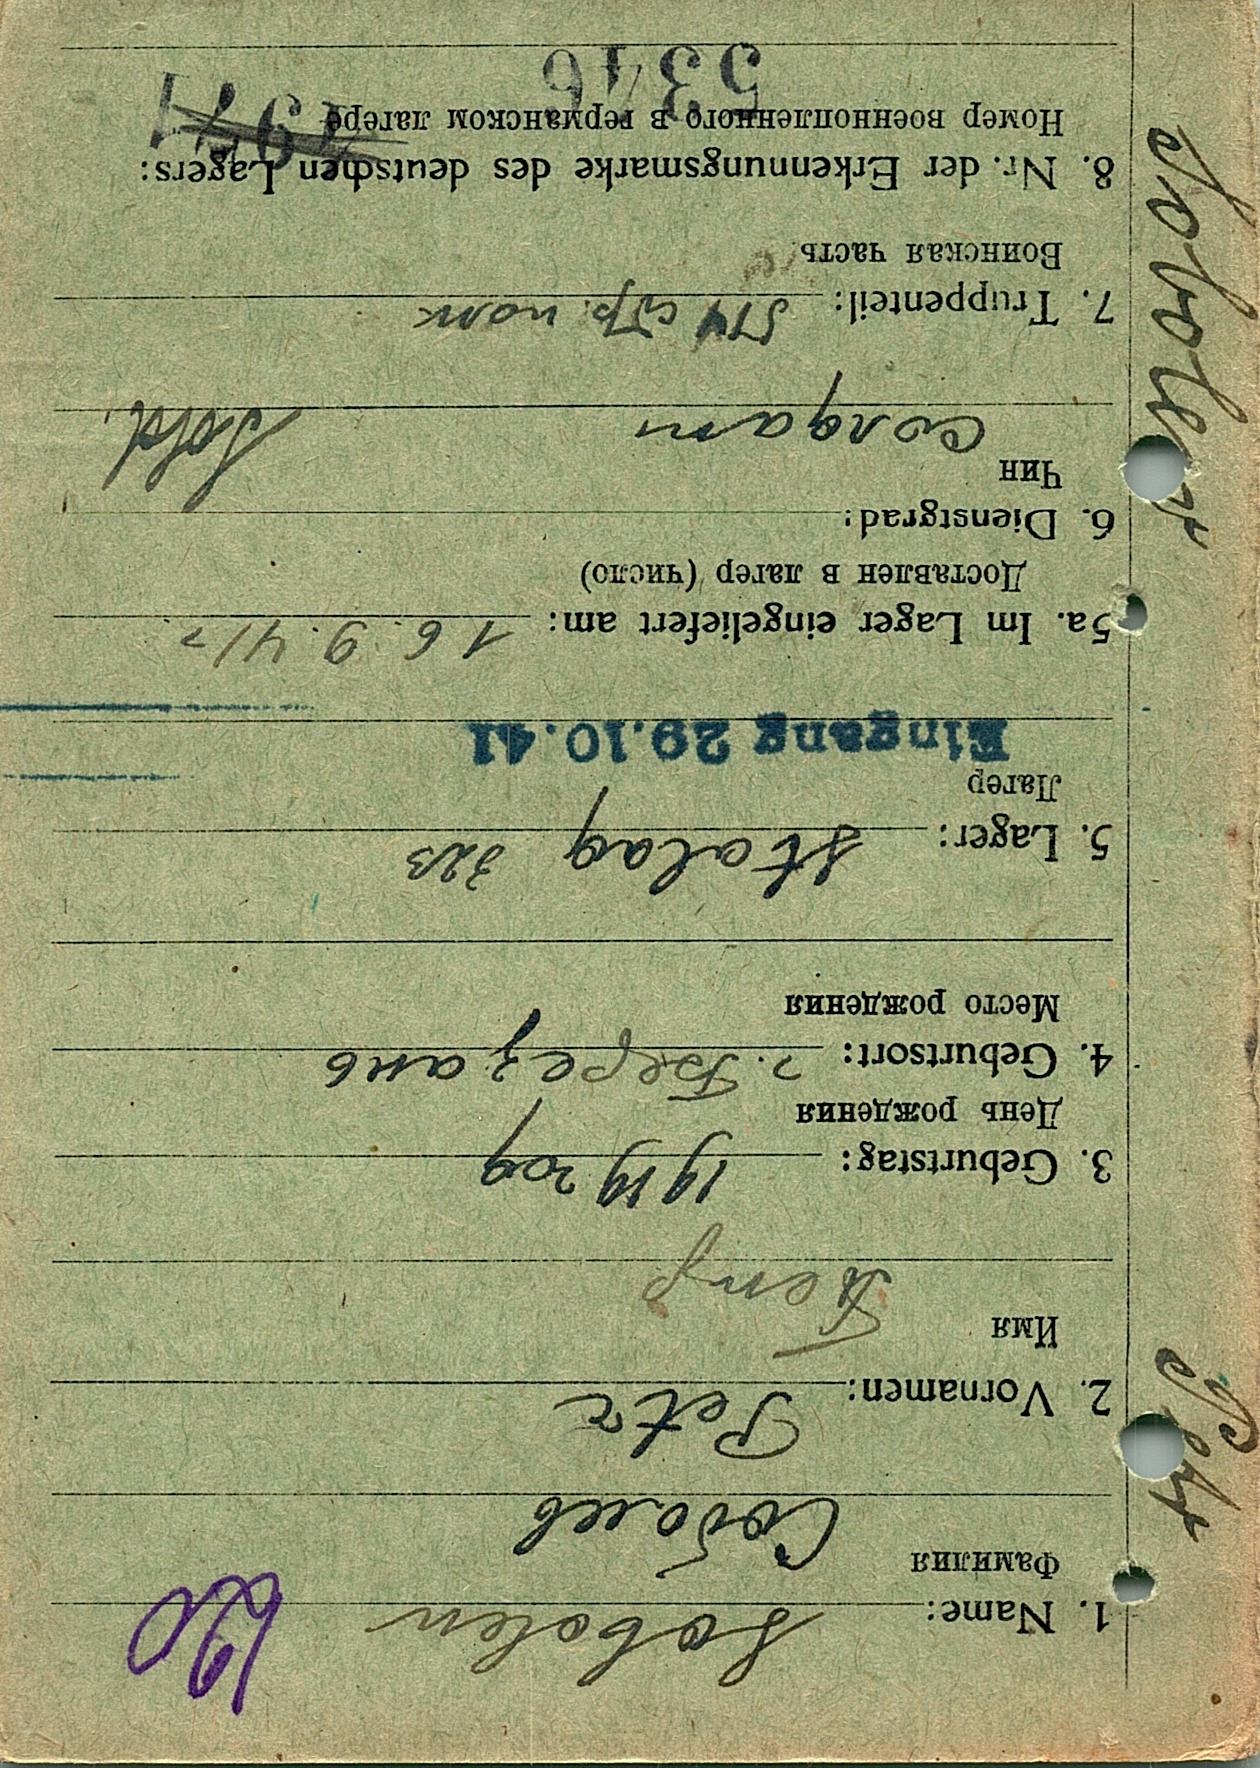 120
1. Name: Sobolew
Фамилия Соболев
2. Vornamen: Petr
Имя Петр
3. Geburtstag: 1919 год
День рождения
4. Geburtsort: г. Березань
Место рождения
5. Lager: Stalag 323
Лагер
Eingang 29.10.41
5a. Im Lager eingeliefert am: 16.9.41 г.
Доставлен в лагер (число)
6. Dienstgrad:
Чин солдат Sold.
7. Truppenteil: 514 стр. полк
Воинская часть
8. Nr. der Erkennungsmarke des deutschen Lagers:
Номер военнопленного в германском лагере
5346
Petr